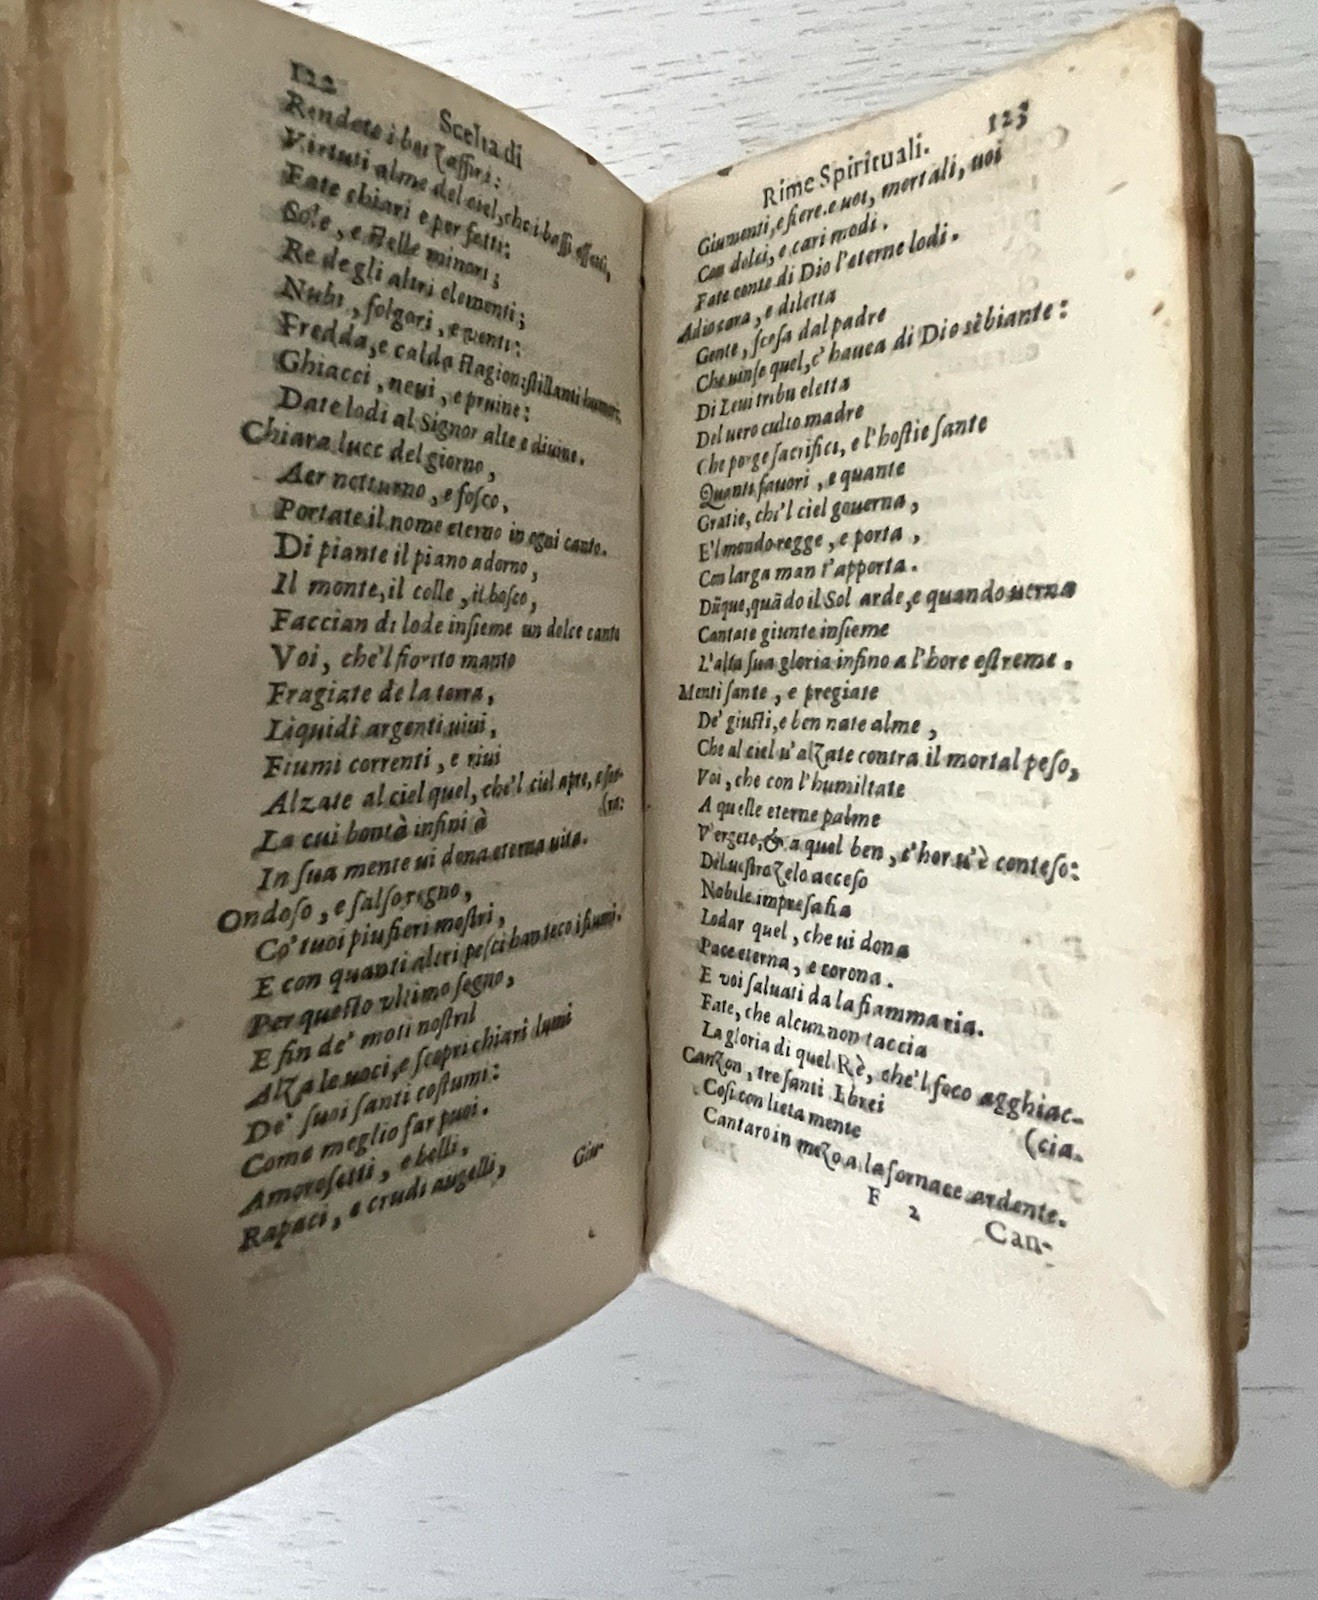 122 Scelta di
Rendete i bei zaffiri:
Virtuti alme del ciel, che i bassi effetti,
Fate chiari e perfetti:
Sole, e stelle minori;
Re degli altri elementi;
Nubi, folgori, e venti:
Fredda, e calda stagion: stillanti humori,
Ghiacci, neui, e pruine:
Date lodi al Signor alte e diuine.
Chiara luce del giorno,
Aer notturno, e fosco,
Portate il nome eterno in ogni canto.
Di piante il piano adorno,
Il monte, il colle, il bosco,
Faccian di lode insieme un dolce canto
Voi, che'l fiorito manto
Fragiate de la terra,
Liquidi argenti uiui,
Fiumi correnti, e riui
Alzate al ciel quel, che'l ciel apre, e ser-
(ra:
La cui bontà infinià
In sua mente ui dona eterna uita.
Ondoso, e salso regno,
Co' tuoi piu fieri mostri,
E con quanti altri pesci han teco i fiumi.
Per questo vltimo segno,
E fin de' moti nostril
Alza le uoci, e scopri chiari lumi
De' suoi santi costumi:
Come meglio far puoi.
Amorosetti, e belli,
Rapaci, e crudi augelli,
Giu-
Rime Spirituali. 123
Giumenti, e fiere. e uoi, mortali, uoi
Con dolci, e cari modi.
Fate conte di Dio l'eterne lodi.
A dio cara, e diletta
Gente, scesa dal padre
Che uinse quel, c' hauea di Dio sēbiante:
Di Leui tribu eletta
Del uero culto madre
Che porge sacrifici, e l'hostie sante
Quanti fauori, e quante
Gratie, chi'l ciel gouerna,
E'l mondo regge, e porta,
Con larga man t'apporta.
Dūque, quādo il Sol arde, e quando uerna
Cantate giunte insieme
L'alta sua gloria infino a l'hore estreme.
Menti sante, e pregiate
De' giusti, e ben nate alme,
Che al ciel u'alzate contra il mortal peso,
Voi, che con l'humiltate
A quelle eterne palme
V'ergete, & a quel ben, c'hor u'è conteso:
Del uostra zelo acceso
Nobile impresa fia
Lodar quel, che ui dona
Pace eterna, e corona.
E voi saluati da la fiamma ria.
Fate, che alcun non taccia
La gloria di quel Rè, che'l foco agghiac-
(cia.
Canzon, tre santi Ebrei
Cosi con lieta mente
Cantaro in mezo a la fornace ardente.
F 2
Can-